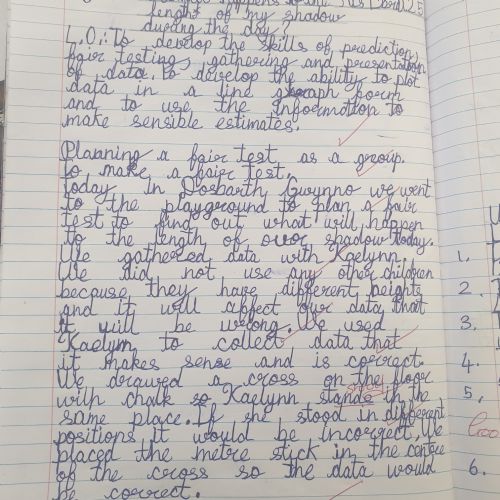 happens to the
lenght of my shadow
during the day?
L.O: To develop the skills of prediction,
fair testing, gathering and presentation
of data, to develop the ability to plot
data in a line graph form
and to use the information to
make sensible estimates.
Planning a fair test as a group.
to make a fair test.
Today in Dosbarth Gwynno we went
to the playground to plan a fair
test to find out what will happen
to the length of our shadow today.
We gathered data with Kaelynn.
We did not use any other children
because they have different heights
and it will affect our data that
it will be wrong. We used
Kaelynn to collect data that
it makes sense and is correct.
We drawed a cross on the floor
with chalk so Kaelynn stands in the
same place. If she stood in different
positions it would be incorrect. We
placed the metre stick in the centre
of the cross so the data would
be correct.
1.
2.
3.
4.
5.
6.